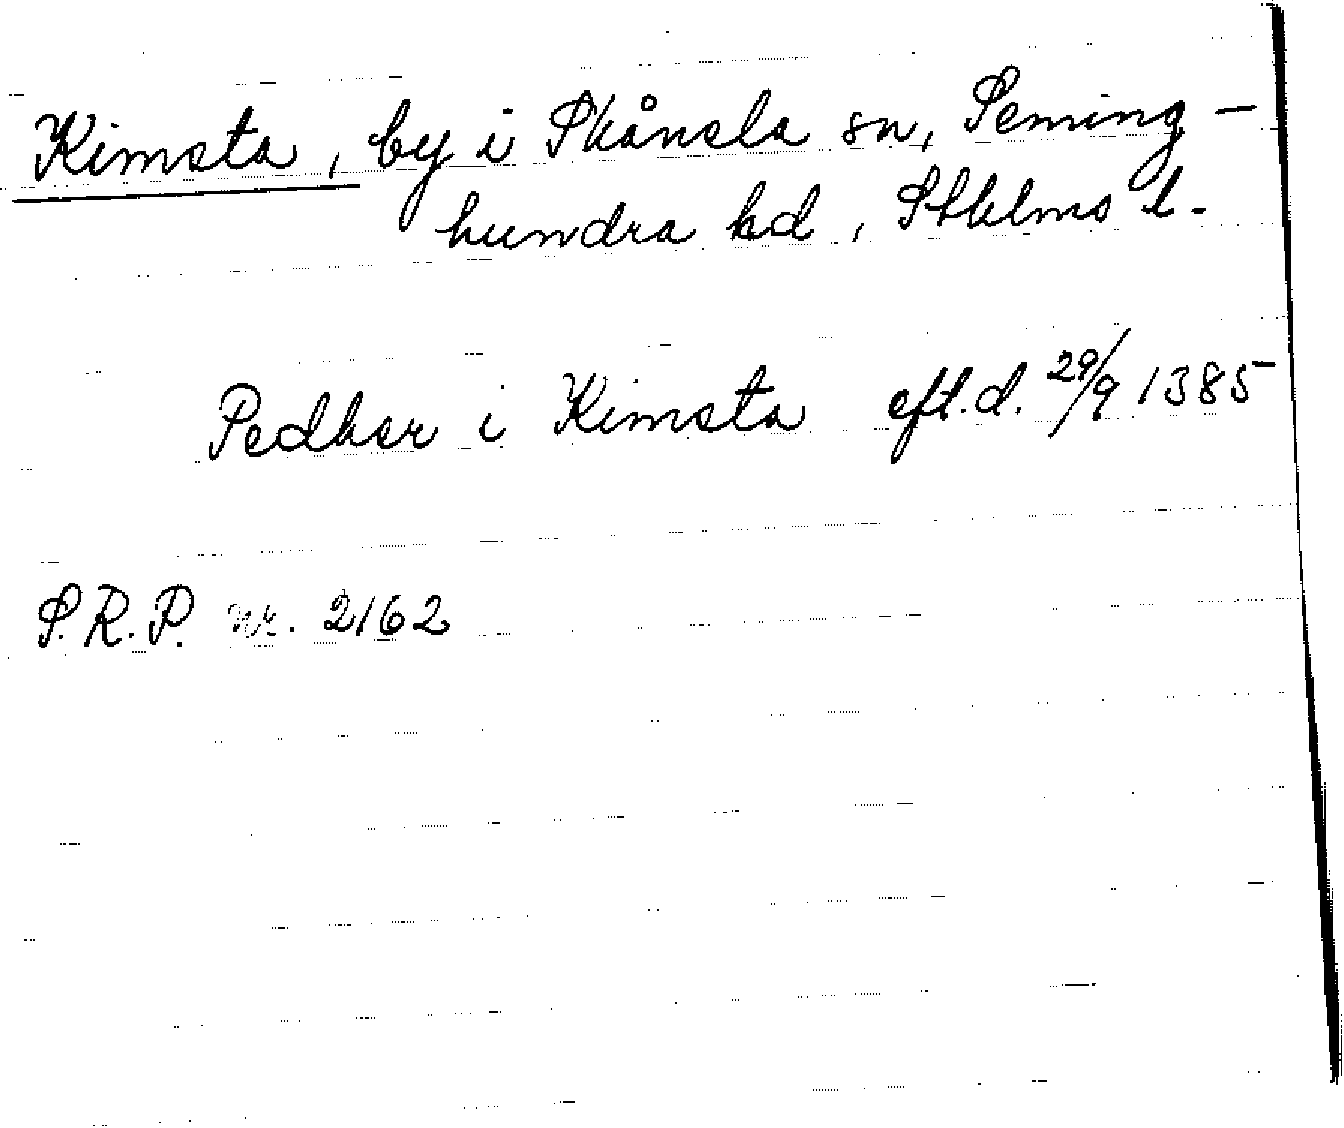 Kimsta, by i Skånela sn, Seming-
hundra hd, Sthlms l.
Pedher i Kimsta eft. d. 29/9 1385
S.R.P. nr. 2162